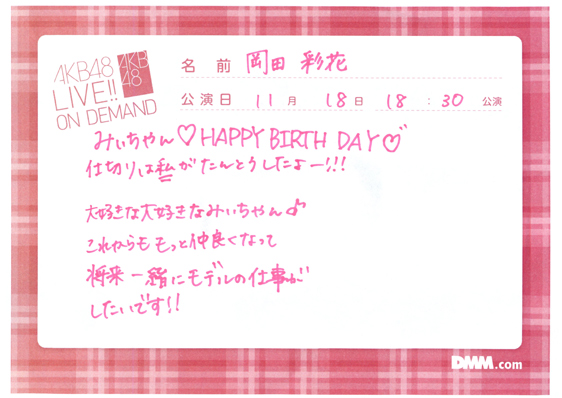 AKB48
LIVE!!
ON DEMAND
AKB
48
名 前 岡田 彩花
公演日 11月 18日 18 : 30 公演
みぃちゃん♡HAPPY BIRTH DAY♡
仕切りは私がたんとうしたよー!!!
大好きな大好きなみぃちゃん♪
これからももっと仲良くなって
将来一緒にモデルの仕事が
したいです!!
DMM.com